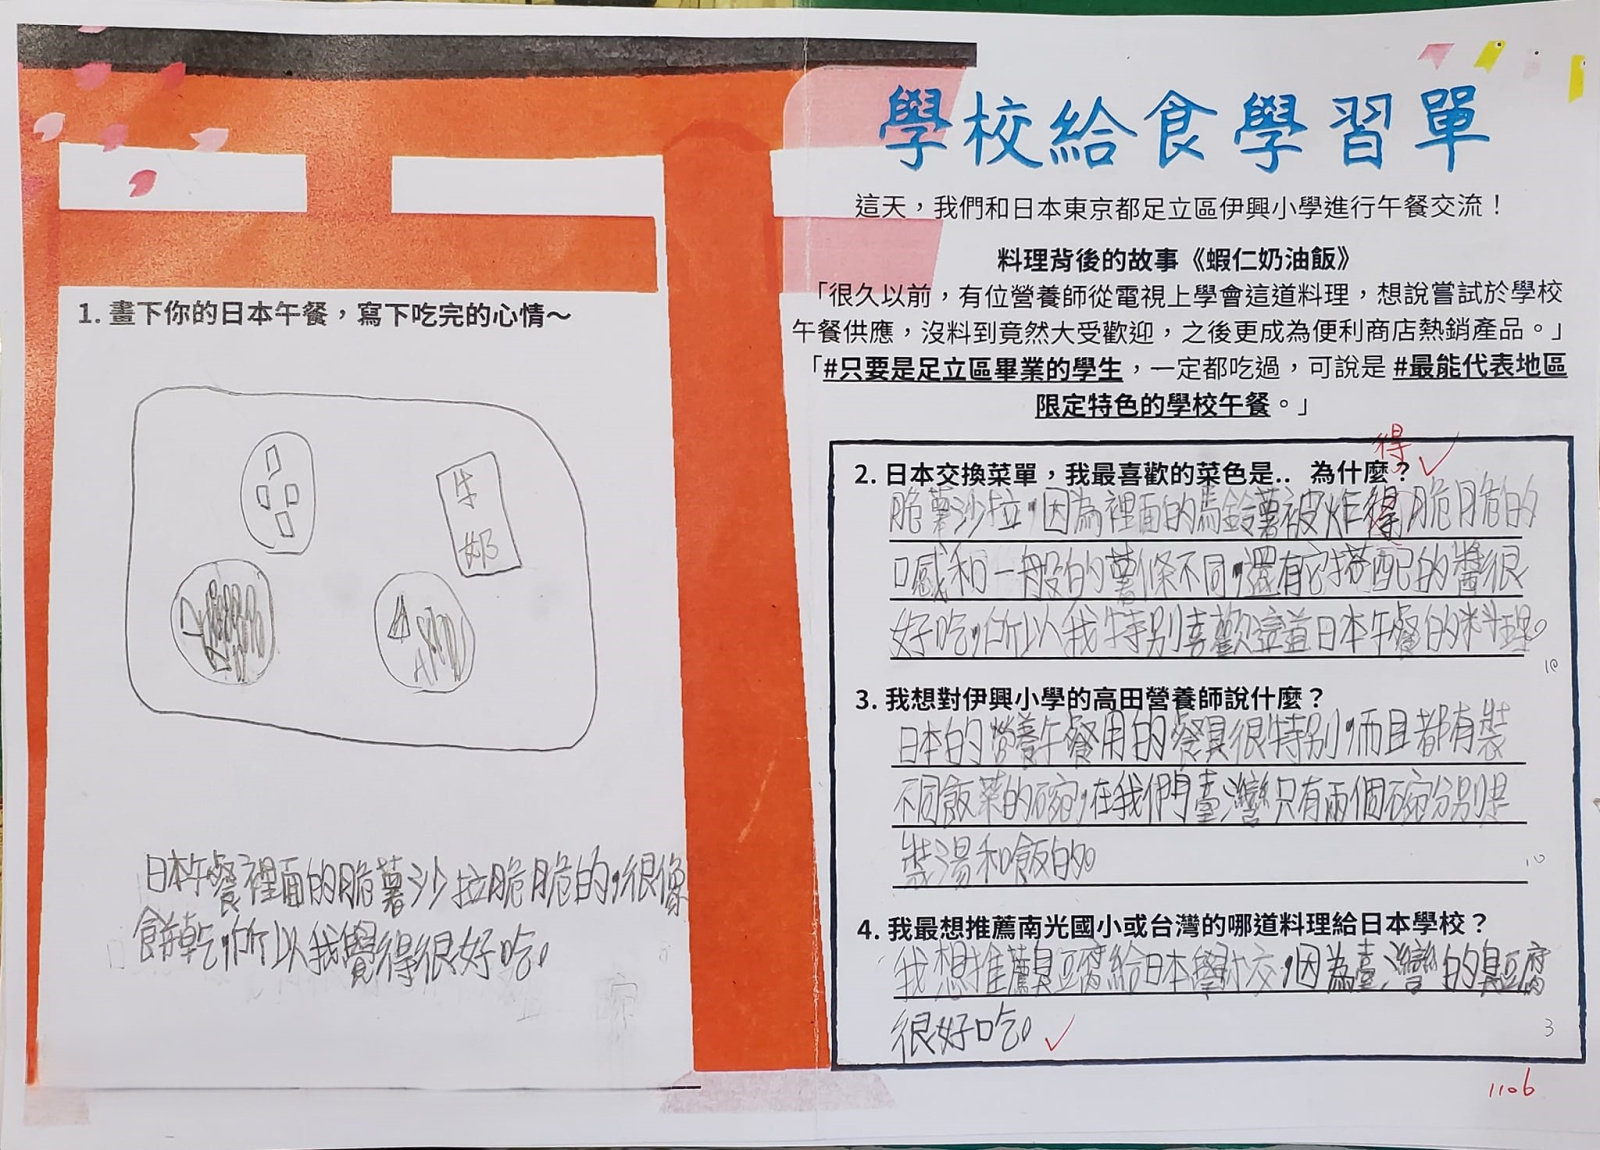 學校給食學習單
這天，我們和日本東京都足立區伊興小學進行午餐交流！
料理背後的故事《蝦仁奶油飯》
「很久以前，有位營養師從電視上學會這道料理，想說嘗試於學校
午餐供應，沒料到竟然大受歡迎，之後更成為便利商店熱銷產品。」
「#只要是足立區畢業的學生，一定都吃過，可說是 #最能代表地區
限定特色的學校午餐。」
1. 畫下你的日本午餐，寫下吃完的心情～
牛
奶
日本午餐裡面的脆薯沙拉脆脆的，很像
餅乾，所以我覺得很好吃。
得
2. 日本交換菜單，我最喜歡的菜色是.. 為什麼？
脆薯沙拉，因為裡面的馬鈴薯被炸得脆脆的
口感和一般的薯條不同，還有它搭配的醬很
好吃，所以我特別喜歡這道日本午餐的料理。
10
3. 我想對伊興小學的高田營養師說什麼？
日本的營養午餐用的餐具很特別，而且都有裝
不同飯菜的碗，在我們臺灣只有兩個碗分別是
裝湯和飯的。
10
4. 我最想推薦南光國小或台灣的哪道料理給日本學校？
我想推薦臭豆腐給日本學校，因為臺灣的臭豆腐
很好吃。
3
1106